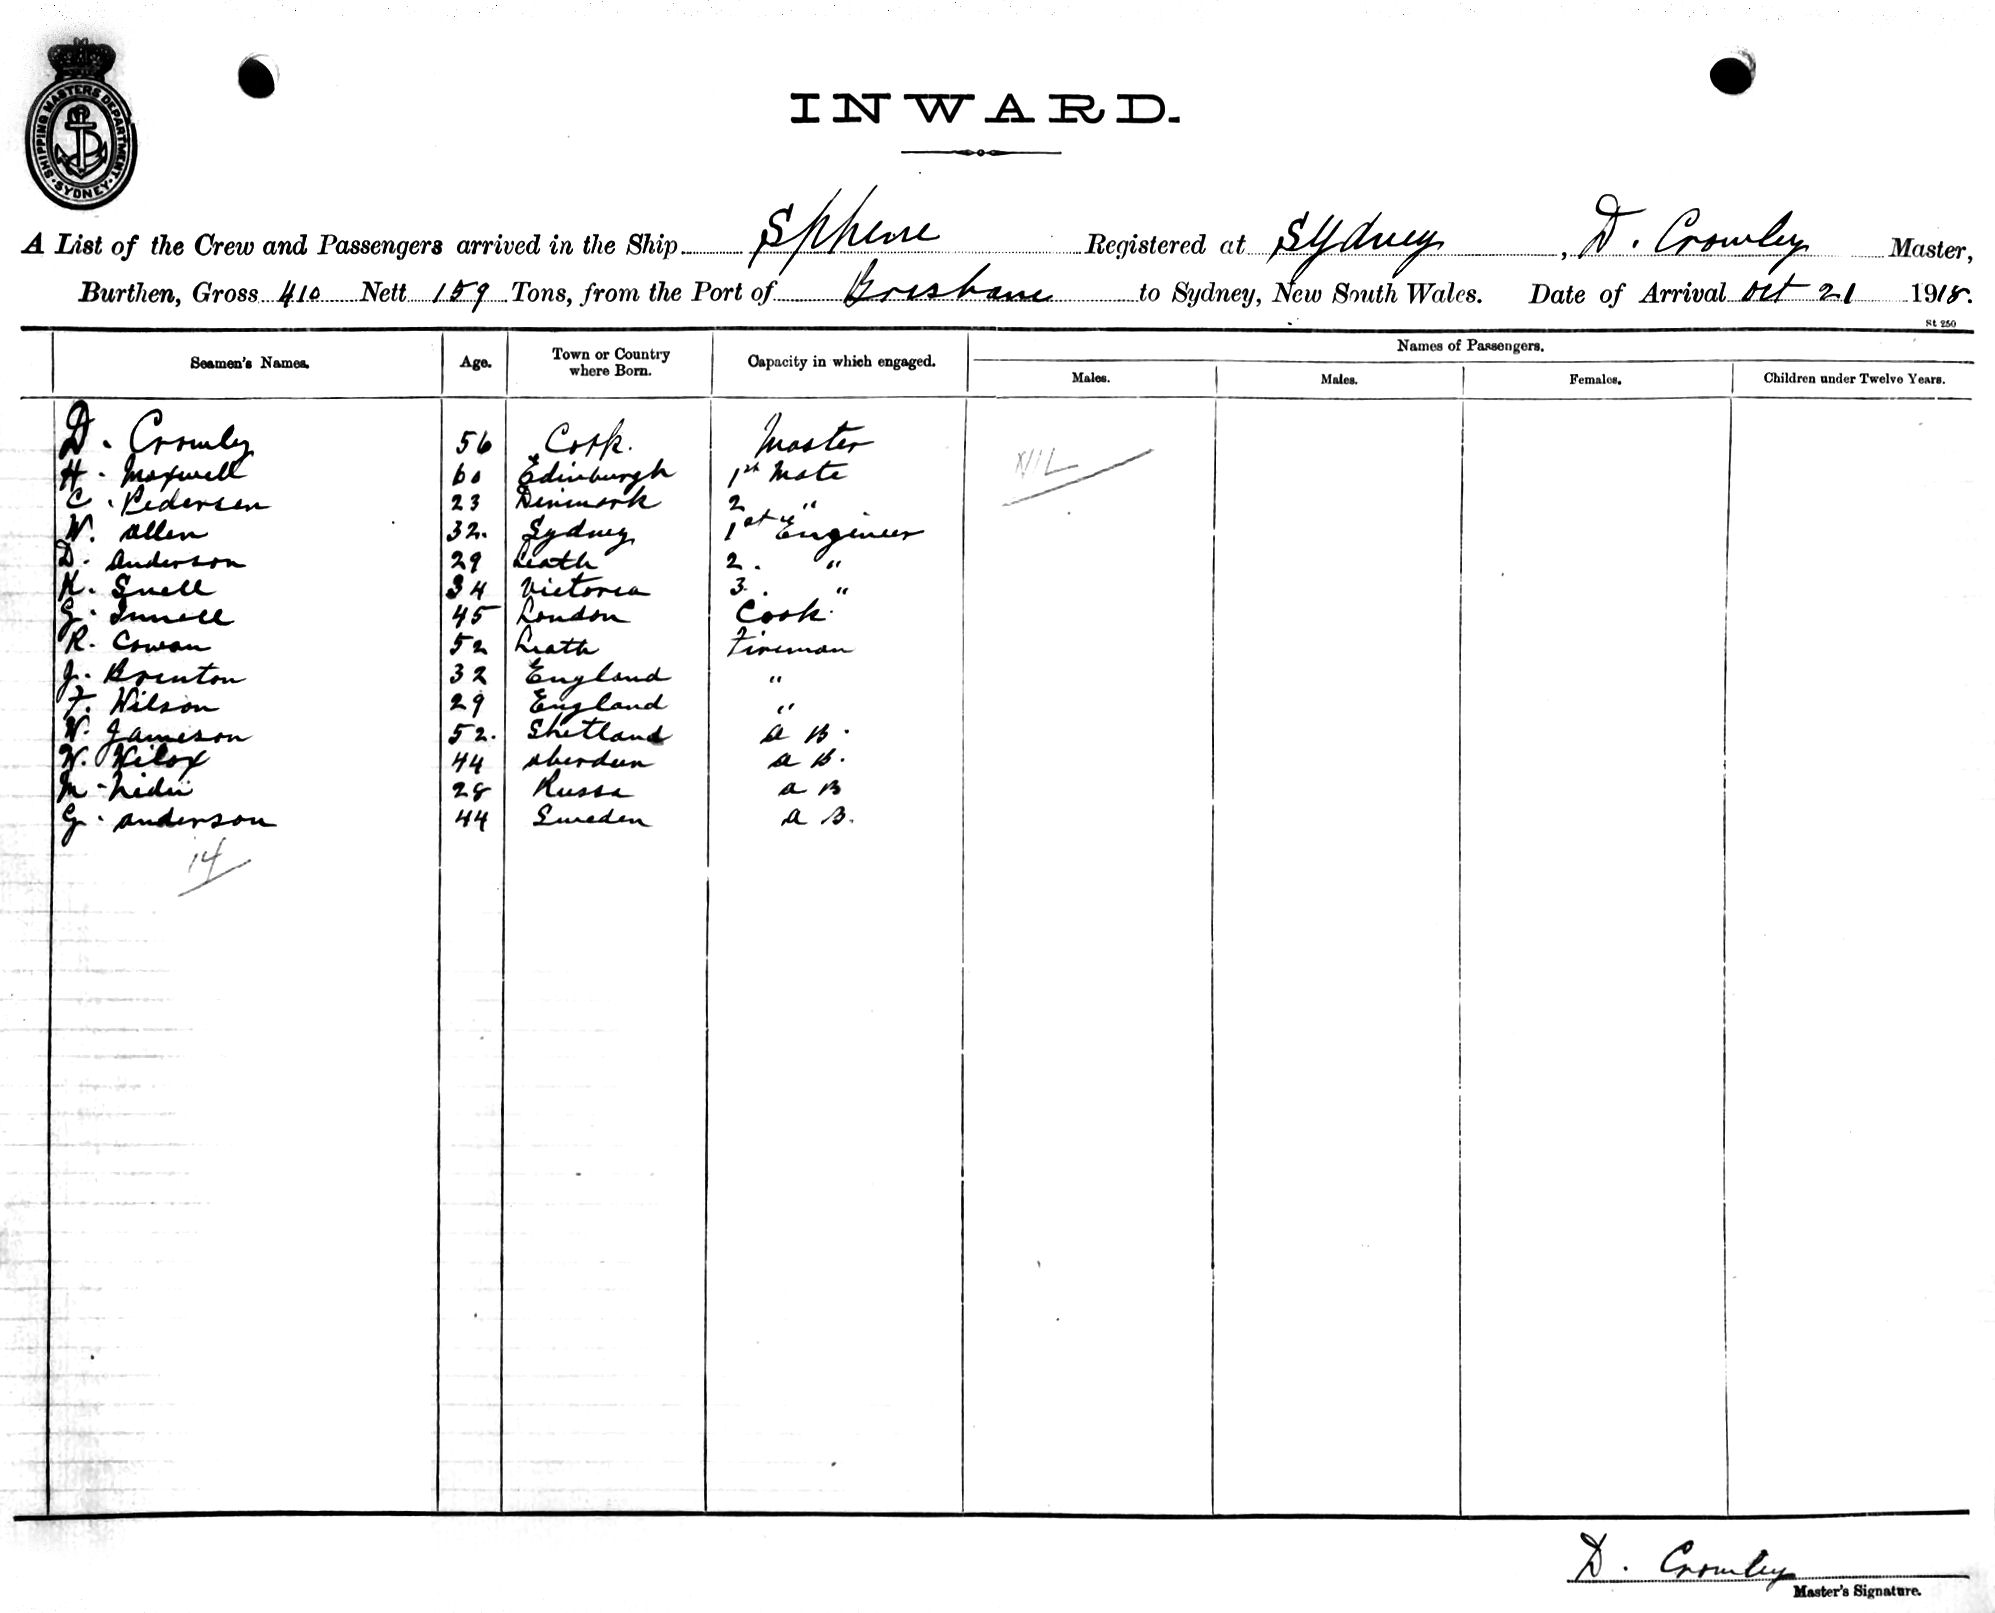 SHIPPING MASTERS DEPARTMENT · SYDNEY ·
INWARD.
A List of the Crew and Passengers arrived in the Ship Sphene Registered at Sydney, D. Crowley Master,
Burthen, Gross 410 Nett 159 Tons, from the Port of Brisbane to Sydney, New South Wales. Date of Arrival Oct 21 1918.
St 250
Seamen's Names. Age. Town or Country where Born. Capacity in which engaged. Names of Passengers.
Males. Males. Females. Children under Twelve Years.
D. Crowley 56 Cork. Master
NIL
H. Maxwell 60 Edinburgh 1st Mate
C. Pedersen 23 Denmark 2 "
W. Allen 32. Sydney 1st Engineer
D. Anderson 29 Leath 2. "
K. Snell 34 Victoria 3. "
G. 45 London Cook.
R. Cowan 52 Leath Fireman
J. Brinton 32 England "
F. Wilson 29 England "
W. Jameson 52. Shetland a B.
W. Wilox 44 aberdeen a B.
M. 28 Russa a B
G. anderson 44 Sweden a B.
14
D. Crowley
Master's Signature.